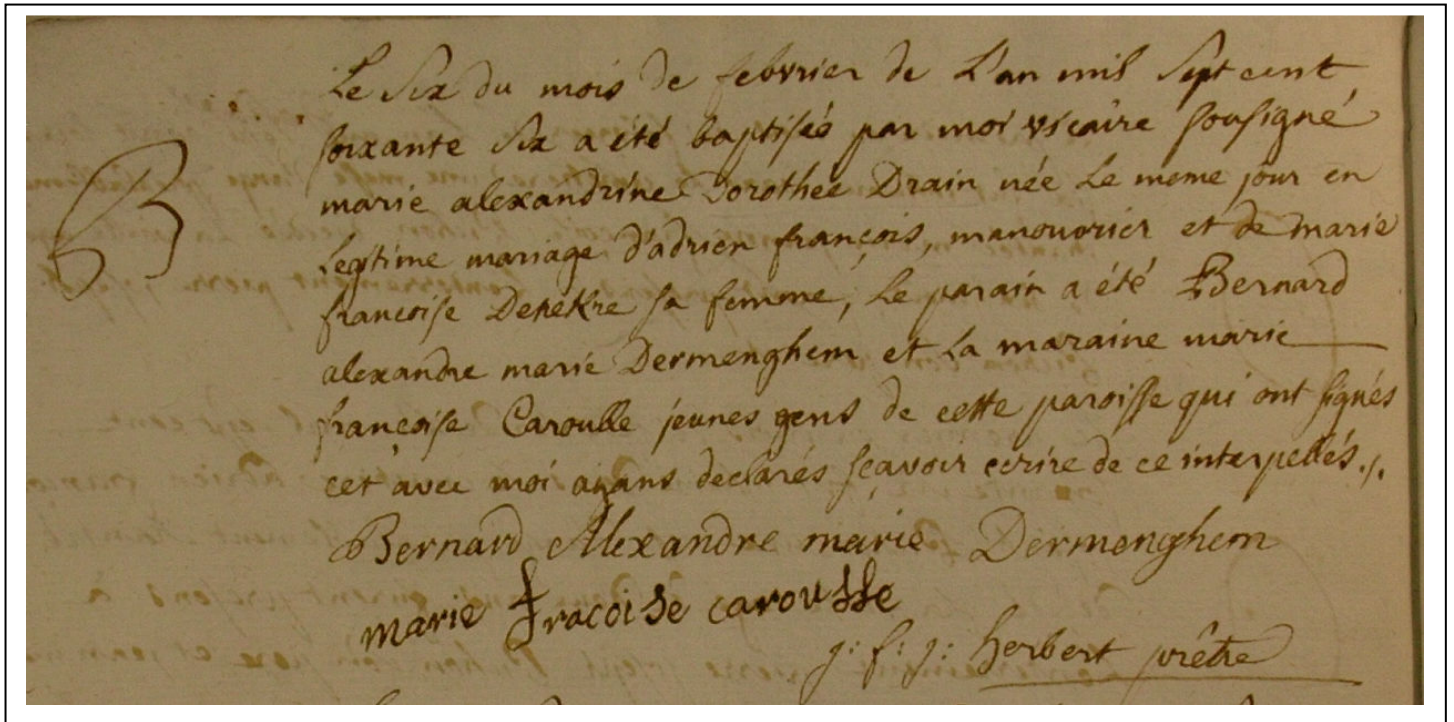 B
Le six du mois de febvrier de L'an mil sept cent
soixante six a été baptisée par moi vicaire sousigné
marie alexandrine Dorothée Drain née Le meme jour en
Legitime mariage d'adrien françois, manouvrier et de marie
françoise Denekre sa femme, Le parain a été Bernard
alexandre marie Dermenghem et La maraine marie
françoise Caroulle jeunes gens de cette paroisse qui ont signés
cet avec moi ayans declarés sçavoir ecrire de ce interpellés./.
Bernard Alexandre marie Dermenghem
marie fracoise carousse
j: f: j: herbert prêtre